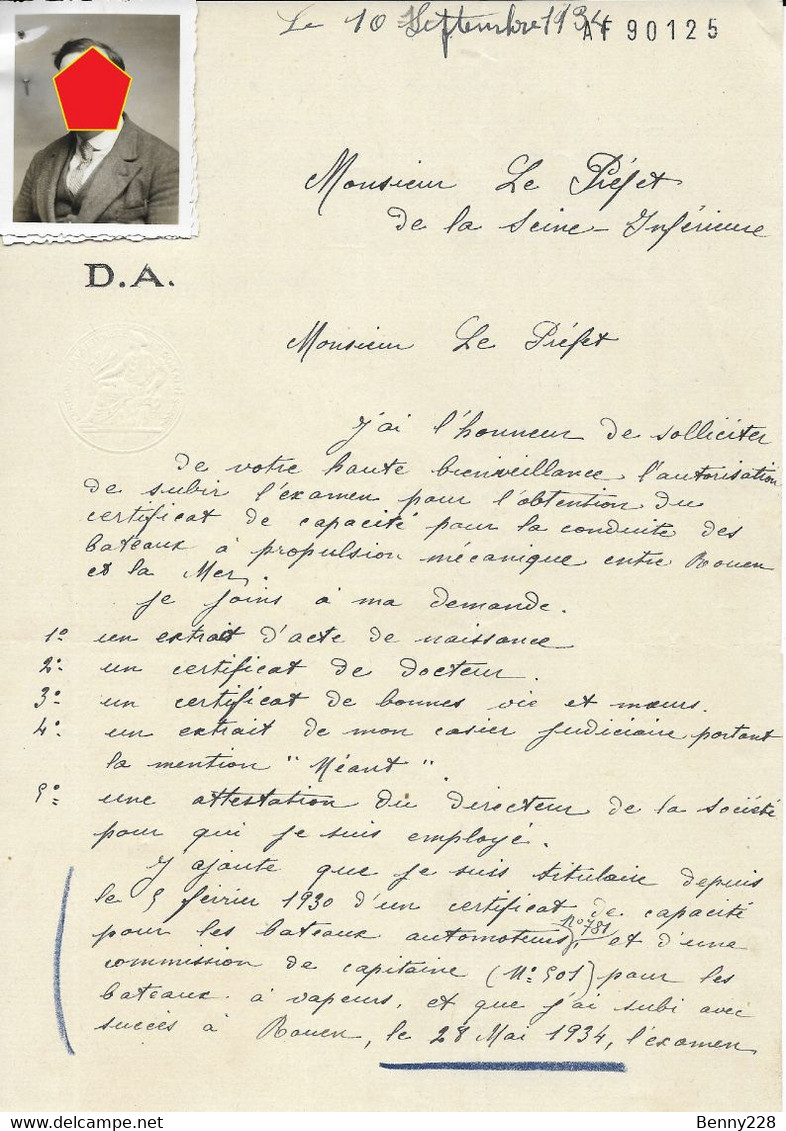 Le 10 Septembre 1934
AF 90125
Monsieur Le Préfet
de la Seine-Inférieure
D.A.
Monsieur Le Préfet
J'ai l'honneur de solliciter
de votre haute bienveillance l'autorisation
de subir l'examen pour l'obtention du
certificat de capacité pour la conduite des
bateaux à propulsion mécanique entre Rouen
et la Mer.
Je joins à ma demande.
1º un extrait d'acte de naissance
2º un certificat de docteur.
3º un certificat de bonnes vie et mœurs.
4º un extrait de mon casier judiciaire portant
la mention "Néant".
5º une attestation du directeur de la société
pour qui je suis employé.
J'ajoute que je suis titulaire depuis
le 5 février 1930 d'un certificat de capacité
pour les bateaux automoteurs nº 781 et d'une
commission de capitaine (Nº 501) pour les
bateaux à vapeurs, et que j'ai subi avec
succès à Rouen, le 28 Mai 1934, l'examen
Benny228